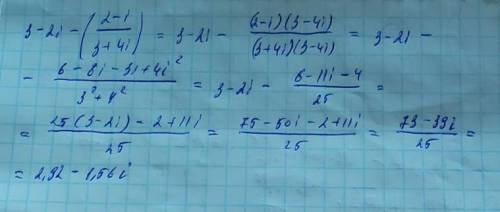 3-2i-(\frac{2-i}{3+4i}) = 3-2i-\frac{(2-i)(3-4i)}{(3+4i)(3-4i)} = 3-2i-
-\frac{6-8i-3i+4i^2}{3^2+4^2} = 3-2i-\frac{6-11i-4}{25} =
=\frac{25(3-2i)-2+11i}{25} = \frac{75-50i-2+11i}{25} = \frac{73-39i}{25} =
= 2,92-1,56i